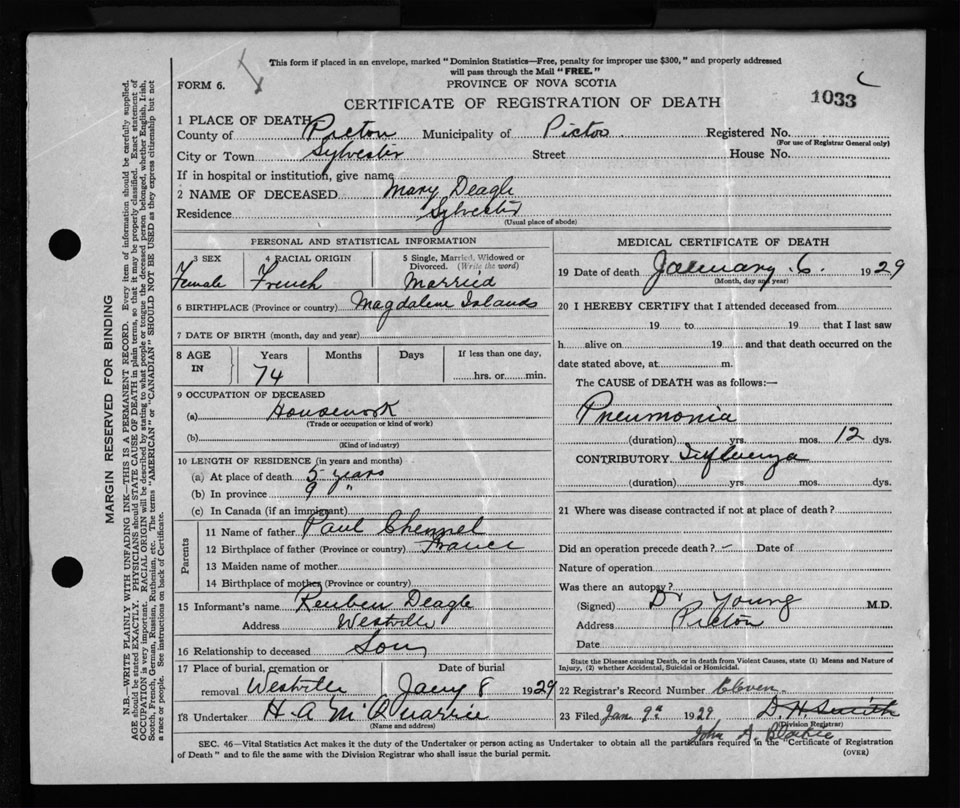 This form if placed in an envelope, marked "Dominion Statistics—Free, penalty for improper use $300," and properly addressed
will pass through the Mail "FREE."
FORM 6.
PROVINCE OF NOVA SCOTIA
CERTIFICATE OF REGISTRATION OF DEATH
1033
1 PLACE OF DEATH
County of Pictou Municipality of Pictou Registered No.
(For use of Registrar General only)
City or Town Sylvester Street House No.
If in hospital or institution, give name
2 NAME OF DECEASED Mary Deagle
Residence Sylvester
(Usual place of abode)
PERSONAL AND STATISTICAL INFORMATION
3 SEX 4 RACIAL ORIGIN 5 Single, Married, Widowed or
Divorced. (Write the word)
Female French Married
6 BIRTHPLACE (Province or country) Magdalene Islands
7 DATE OF BIRTH (month, day and year)
8 AGE IN Years Months Days If less than one day,
74 hrs. or min.
9 OCCUPATION OF DECEASED
(a) Housework
(Trade or occupation or kind of work)
(b)
(Kind of industry)
10 LENGTH OF RESIDENCE (in years and months)
(a) At place of death 5 years
(b) In province 9 "
(c) In Canada (if an immigrant)
Parents
11 Name of father Paul Chennel
12 Birthplace of father (Province or country) France
13 Maiden name of mother
14 Birthplace of mother (Province or country)
15 Informant's name Reuben Deagle
Address Westville
16 Relationship to deceased Son
17 Place of burial, cremation or Date of burial
removal Westville Jany 8 1929
18 Undertaker H A McQuarrie
(Name and address)
MEDICAL CERTIFICATE OF DEATH
19 Date of death January 6. 1929
(Month, day and year)
20 I HEREBY CERTIFY that I attended deceased from
19 to 19 that I last saw
h alive on 19 and that death occurred on the
date stated above, at m.
The CAUSE of DEATH was as follows:—
Pneumonia
(duration) yrs. mos. 12 dys.
CONTRIBUTORY Influenza
(duration) yrs. mos. dys.
21 Where was disease contracted if not at place of death?
Did an operation precede death? – Date of
Nature of operation
Was there an autopsy?
(Signed) Dr Young M.D.
Address Pictou
Date
State the Disease causing Death, or in death from Violent Causes, state (1) Means and Nature of
Injury, (2) whether Accidental, Suicidal or Homicidal.
22 Registrar's Record Number Eleven
23 Filed Jan 9th 1929 D. H. Smith
(Division Registrar)
John A.
SEC. 46—Vital Statistics Act makes it the duty of the Undertaker or person acting as Undertaker to obtain all the particulars required in the "Certificate of Registration
of Death" and to file the same with the Division Registrar who shall issue the burial permit.
(OVER)
MARGIN RESERVED FOR BINDING
N.B.—WRITE PLAINLY WITH UNFADING INK—THIS IS A PERMANENT RECORD. Every item of information should be carefully supplied.
AGE should be stated EXACTLY. PHYSICIANS should STATE CAUSE OF DEATH in plain terms, so that it may be properly classified. Exact statement of
OCCUPATION is very important. RACIAL ORIGIN will be described by stating to what people or tongue the deceased person belonged, whether English, Irish,
Scotch, French, German, Russian, Ruthenian, etc. The terms "AMERICAN" or "CANADIAN" SHOULD NOT BE USED as they express citizenship but not
a race or people. See instructions on back of Certificate.